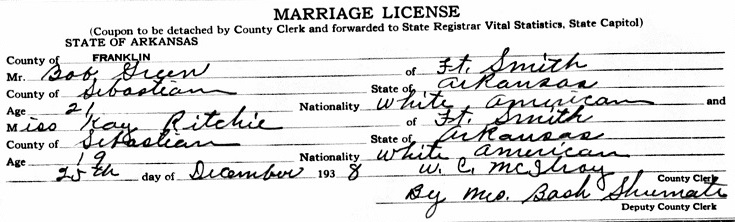 MARRIAGE LICENSE
(Coupon to be detached by County Clerk and forwarded to State Registrar Vital Statistics, State Capitol)
STATE OF ARKANSAS
County of FRANKLIN
Mr. Bob Green of Ft. Smith
County of Sebastian State of Arkansas
Age 21 Nationality White American and
Miss Kay Ritchie of Ft. Smith
County of Sebastian State of Arkansas
Age 19 Nationality White American
25th day of December 1938 W. C. McIlroy County Clerk
By Mrs. Bash Shumate
Deputy County Clerk